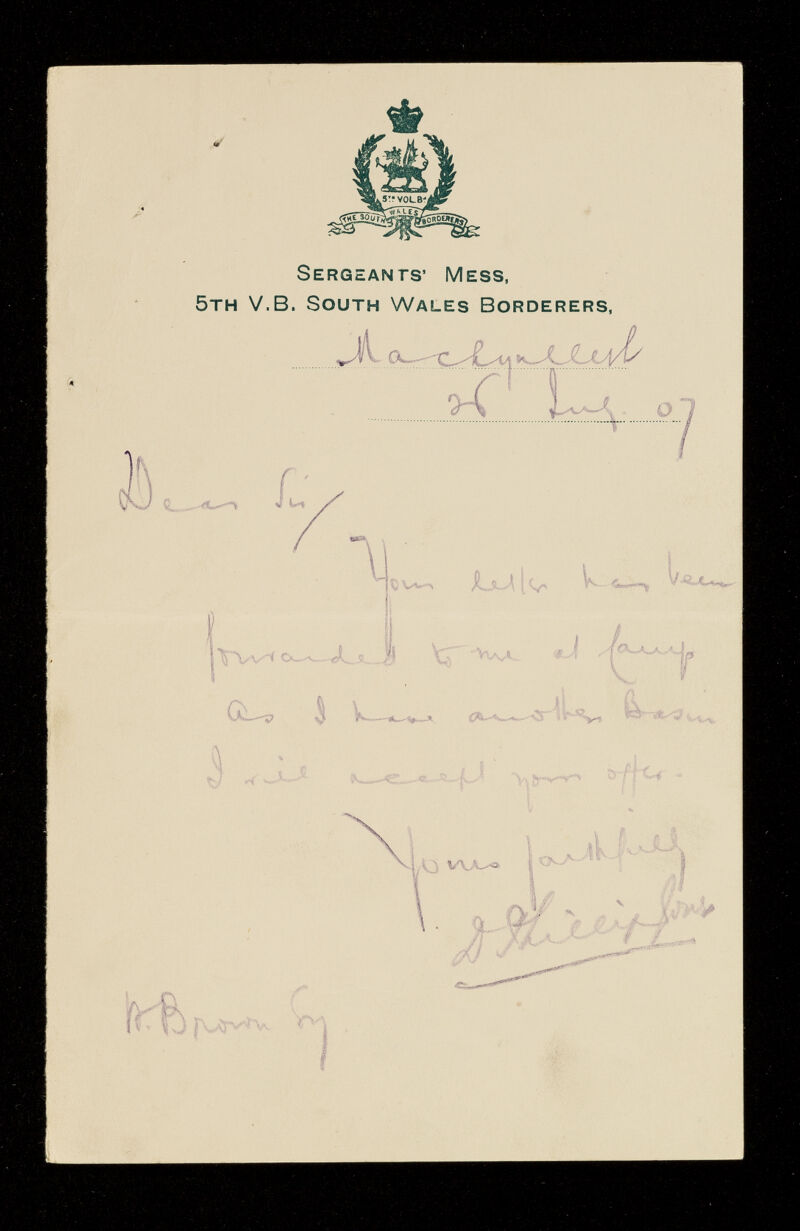 5TH VOL. Bn
THE SOUTH WALES BORDERERS
SERGEANTS' MESS,
5TH V.B. SOUTH WALES BORDERERS,
Machynlleth
26 07
Dear Sir/
Your letter has been
forwarded to me at Camp
As I have another Basin
I will accept your offer.
Yours faithfully
D Phillip Jones
W. Brown Esq